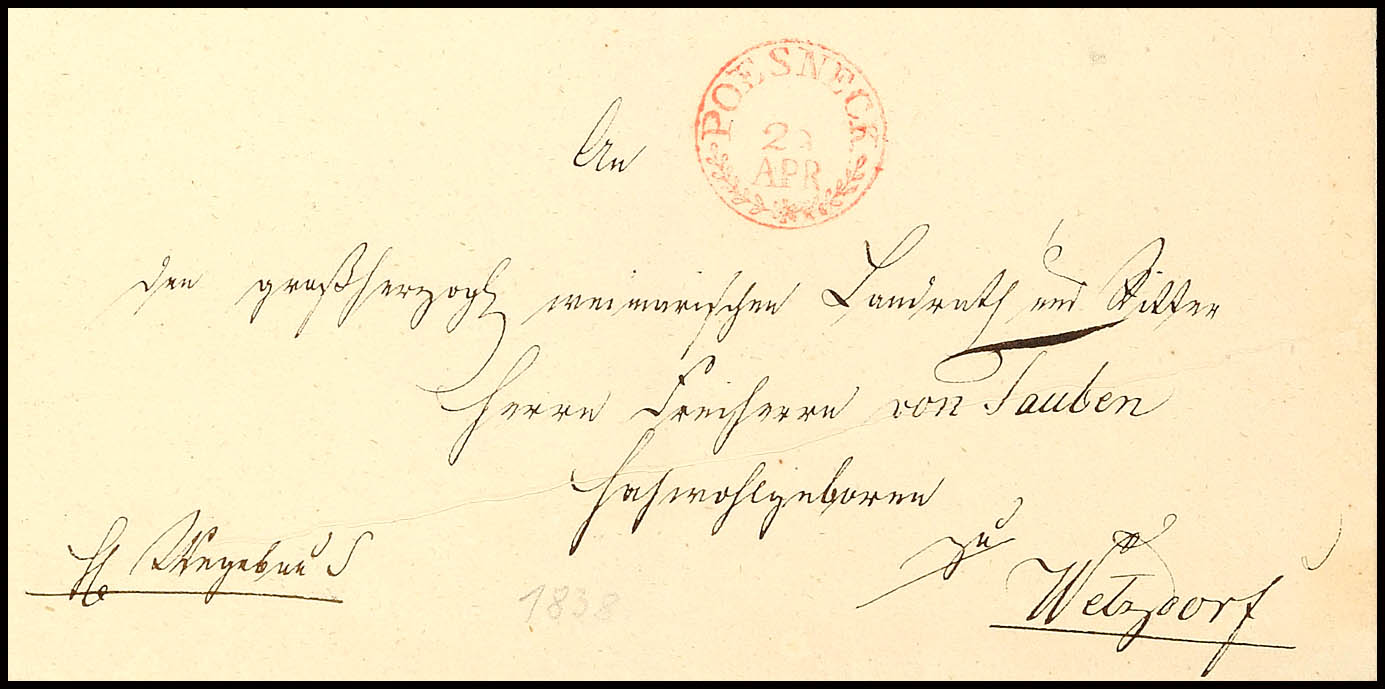 POESNECK
2
APR
An
den großherzogl weimarischen Landrath und Ritter
Herrn Freiherrn von Tauben
Hochwohlgeboren
zu
Wetzdorf
Wegebau S
1838